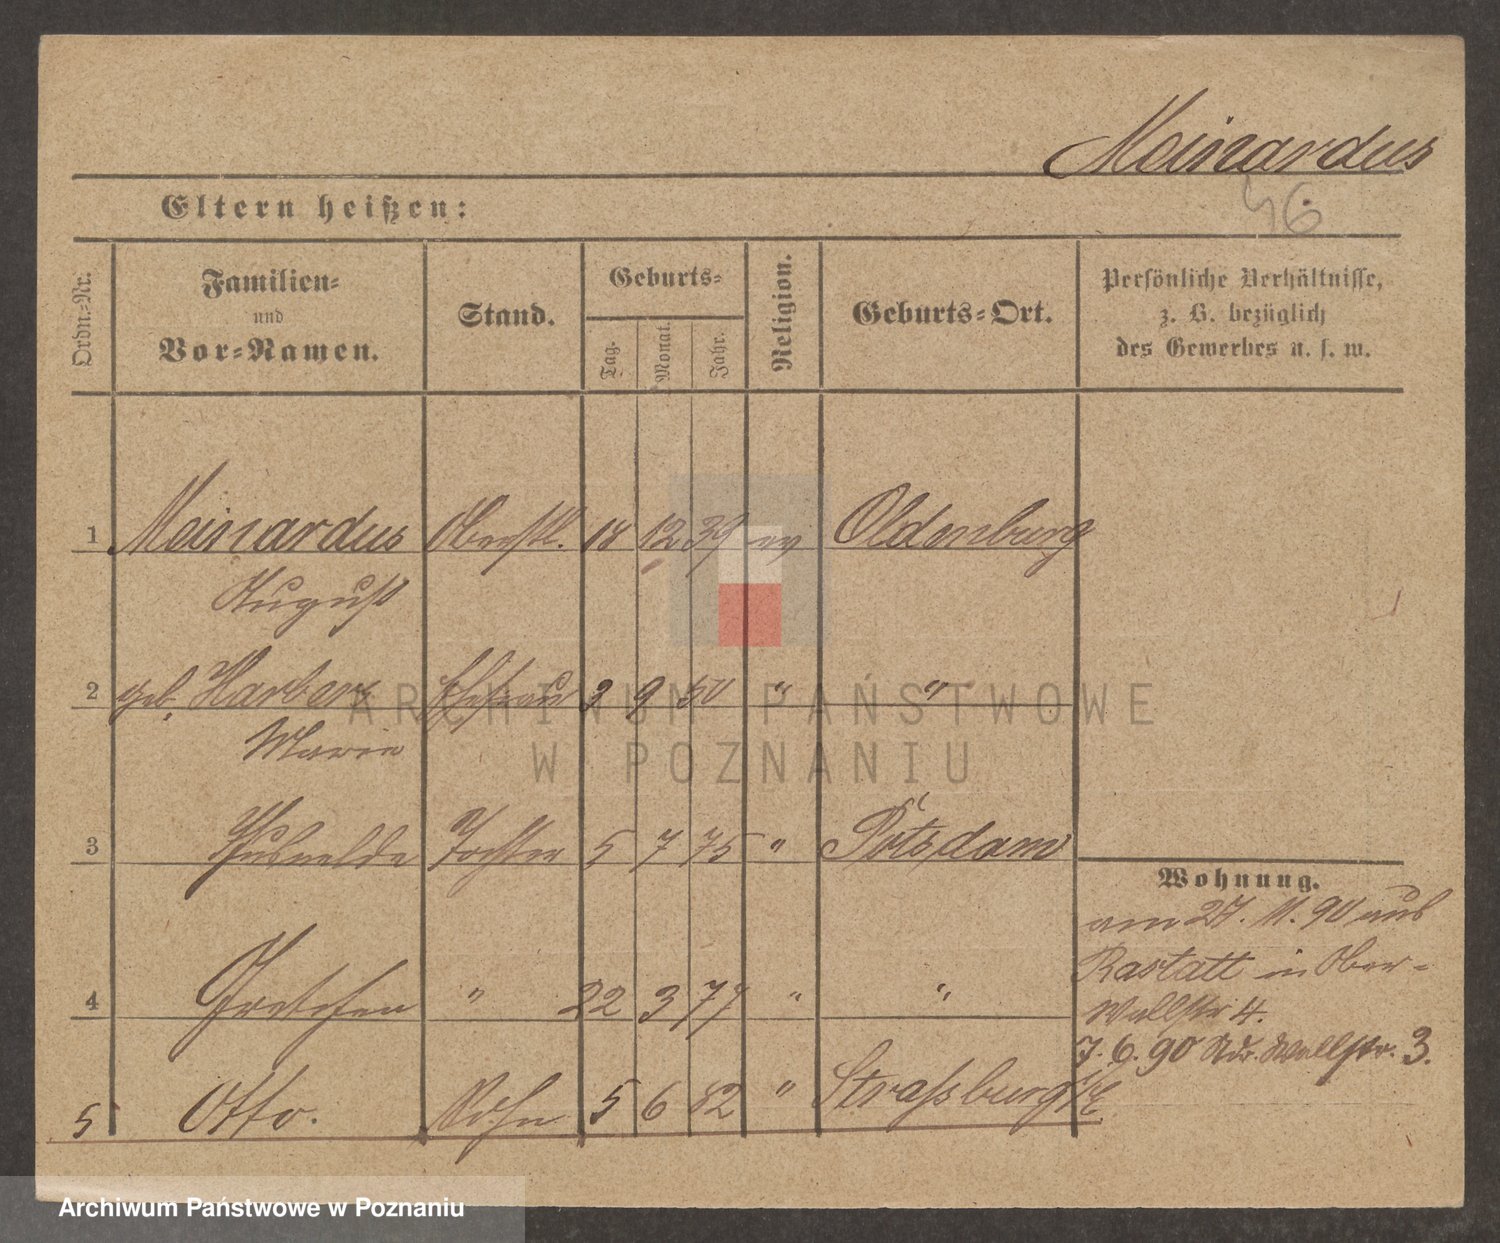 Meinardus
46
Eltern heißen:
Ordn.-Nr.
Familien-
und
Vor-Namen.
Stand.
Geburts-
Tag.
Monat.
Jahr.
Religion.
Geburts-Ort.
Persönliche Verhältnisse,
z. B. bezüglich
des Gewerbes u. s. w.
1 Meinardus Oberstl. 18 12 39 ev Oldenburg
August
2 geb. Harbers Ehefrau 3 9 50 " "
Marie
3 Thusnelda Tochter 5 7 75 " Potsdam
4 Gretchen " 22 3 77 " "
5 Otto. Sohn 5 6 82 " Strassburg i/E
Wohnung.
am 27. 11. 90 aus
Rastatt in Ober-
Wallstr 4.
7. 6. 90 Wallstr. 3.
ARCHIWUM PAŃSTWOWE
W POZNANIU
Archiwum Państwowe w Poznaniu